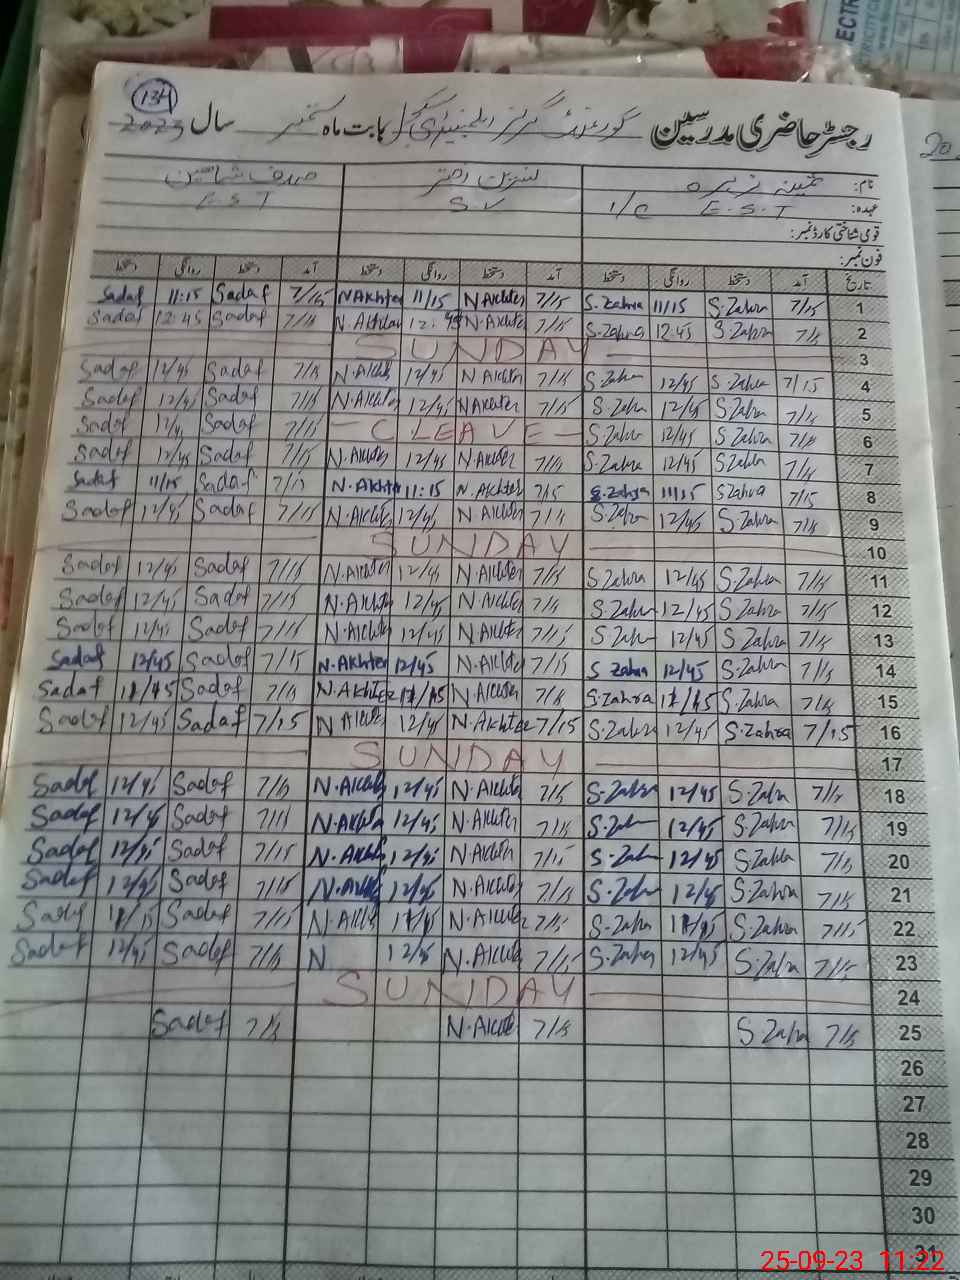 134
رجسٹر حاضری مدرسین گورنمنٹ گرلز ایلیمنٹری سکول بابت ماہ ستمبر سال 2023
نام: ثمینہ زہرہ نسرین اختر صدف شاہین
عہدہ: E.S.T I/C S.V E.S.T
قومی شناختی کارڈ نمبر:
فون نمبر:
تاریخ آمد دستخط روانگی دستخط آمد دستخط روانگی دستخط آمد دستخط روانگی دستخط
Sadaf 11:15 Sadaf 7/15 N Akhter 11/15 N Akhter 7/15 S.Zahra 11/15 S.Zahra 7/15 1
Sadaf 12:45 Sadaf 7/15 N.Akhtar 12:45 N.Akhter 7/15 S.Zahra 12.45 S.Zahra 7/15 2
SUNDAY 3
Sadaf 12/45 Sadaf 7/15 N.Akhter 12/45 N Akhter 7/15 S.Zahra 12/45 S.Zahra 7/15 4
Sadaf 12/45 Sadaf 7/15 N.Akhter 12/45 N Akhter 7/15 S.Zahra 12/45 S.Zahra 7/15 5
Sadaf 12/45 Sadaf 7/15 - C LEAVE - S.Zahra 12/45 S.Zahra 7/15 6
Sadaf 12/45 Sadaf 7/15 N.Akhter 12/45 N.Akhter 7/15 S.Zahra 12/45 S.Zahra 7/15 7
Sadaf 11/15 Sadaf 7/15 N.Akhte 11:15 N.Akhter 7/15 S.Zahra 11/15 S Zahra 7/15 8
Sadaf 12/45 Sadaf 7/15 N.Akhter 12/45 N Akhter 7/15 S.Zahra 12/45 S.Zahra 7/15 9
SUNDAY 10
Sadaf 12/45 Sadaf 7/15 N.Akhter 12/45 N.Akhter 7/15 S Zahra 12/45 S.Zahra 7/15 11
Sadaf 12/45 Sadaf 7/15 N.Akhter 12/45 N.Akhter 7/15 S.Zahra 12/45 S.Zahra 7/15 12
Sadaf 12/45 Sadaf 7/15 N.Akhter 12/45 N.Akhter 7/15 S.Zahra 12/45 S.Zahra 7/15 13
Sadaf 12/45 Sadaf 7/15 N.Akhter 12/45 N.Akhter 7/15 S Zahra 12/45 S.Zahra 7/15 14
Sadaf Sadaf 7/15 N.Akhter N.Akhter 7/15 S.Zahra S.Zahra 7/15 15
Sadaf 12/45 Sadaf 7/15 N Akhter 12/45 N.Akhter 7/15 S.Zahra 12/45 S.Zahra 7/15 16
SUNDAY 17
Sadaf 12/45 Sadaf 7/15 N.Akhter 12/45 N.Akhter 7/15 S.Zahra 12/45 S.Zahra 7/15 18
Sadaf 12/45 Sadaf 7/15 N.Akhter 12/45 N.Akhter 7/15 S.Zahra 12/45 S.Zahra 7/15 19
Sadaf 12/45 Sadaf 7/15 N.Akhter 12/45 N.Akhter 7/15 S.Zahra 12/45 S.Zahra 7/15 20
Sadaf 12/45 Sadaf 7/15 N.Akhter 12/45 N.Akhter 7/15 S.Zahra 12/45 S.Zahra 7/15 21
Sadaf Sadaf 7/15 N.Akhter N.Akhter 7/15 S.Zahra S.Zahra 7/15 22
Sadaf 12/45 Sadaf 7/15 N 12/45 N.Akhter 7/15 S.Zahra 12/45 S.Zahra 7/15 23
SUNDAY 24
Sadaf 7/15 N.Akhter 7/15 S.Zahra 7/15 25
26
27
28
29
30
31
25-09-23 11:22